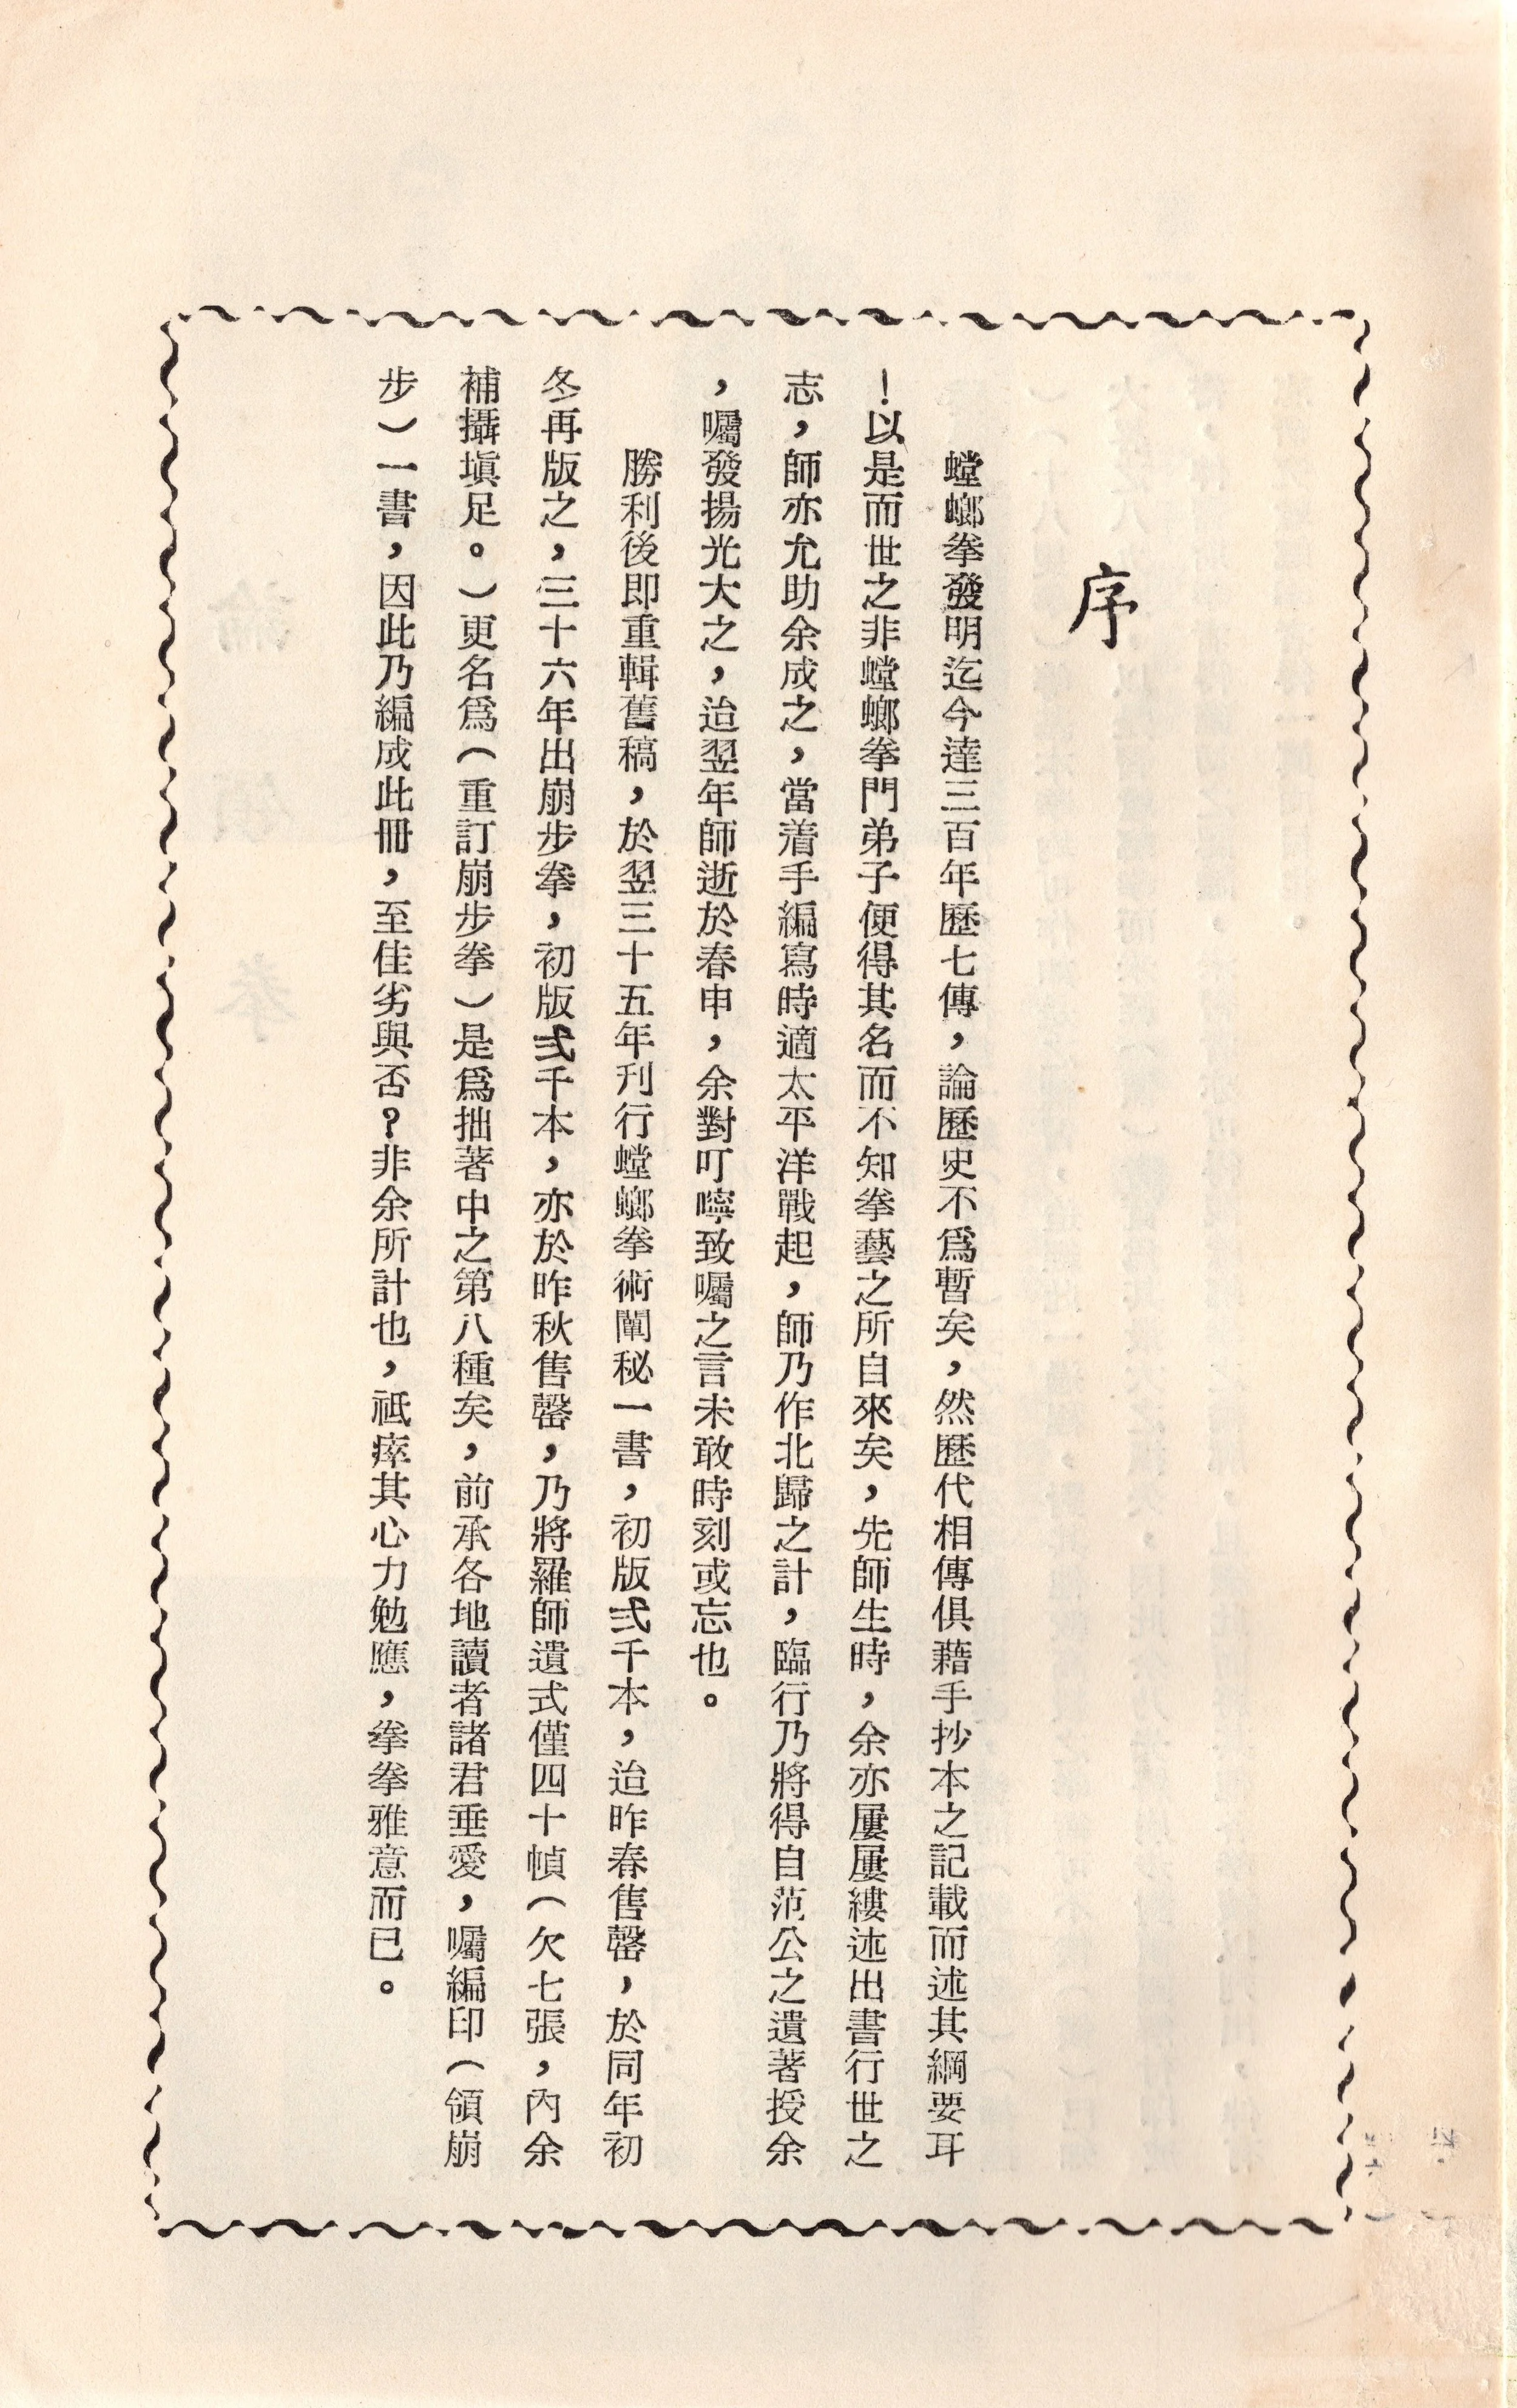 序
螳螂拳發明迄今達三百年歷七傳，論歷史不爲暫矣，然歷代相傳俱藉手抄本之記載而述其綱要耳
！以是而世之非螳螂拳門弟子便得其名而不知拳藝之所自來矣，先師生時，余亦屢屢縷述出書行世之
志，師亦允助余成之，當着手編寫時適太平洋戰起，師乃作北歸之計，臨行乃將得自范公之遺著授余
，囑發揚光大之，迨翌年師逝於春申，余對叮嚀致囑之言未敢時刻或忘也。
勝利後即重輯舊稿，於翌三十五年刊行螳螂拳術闡秘一書，初版弍千本，迨昨春售罄，於同年初
冬再版之，三十六年出崩步拳，初版弍千本，亦於昨秋售罄，乃將羅師遺式僅四十幀（欠七張，內余
補攝塡足。）更名爲（重訂崩步拳）是爲拙著中之第八種矣，前承各地讀者諸君垂愛，囑編印（領崩
步）一書，因此乃編成此冊，至佳劣與否？非余所計也，祗瘁其心力勉應，拳拳雅意而已。